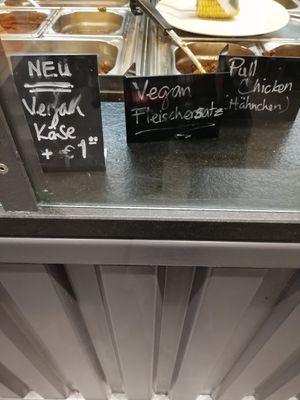 NEU
Vegan
Käse
+ € 1.00
Vegan
Fleischersatz
Pull
Chicken
(Hähnchen)